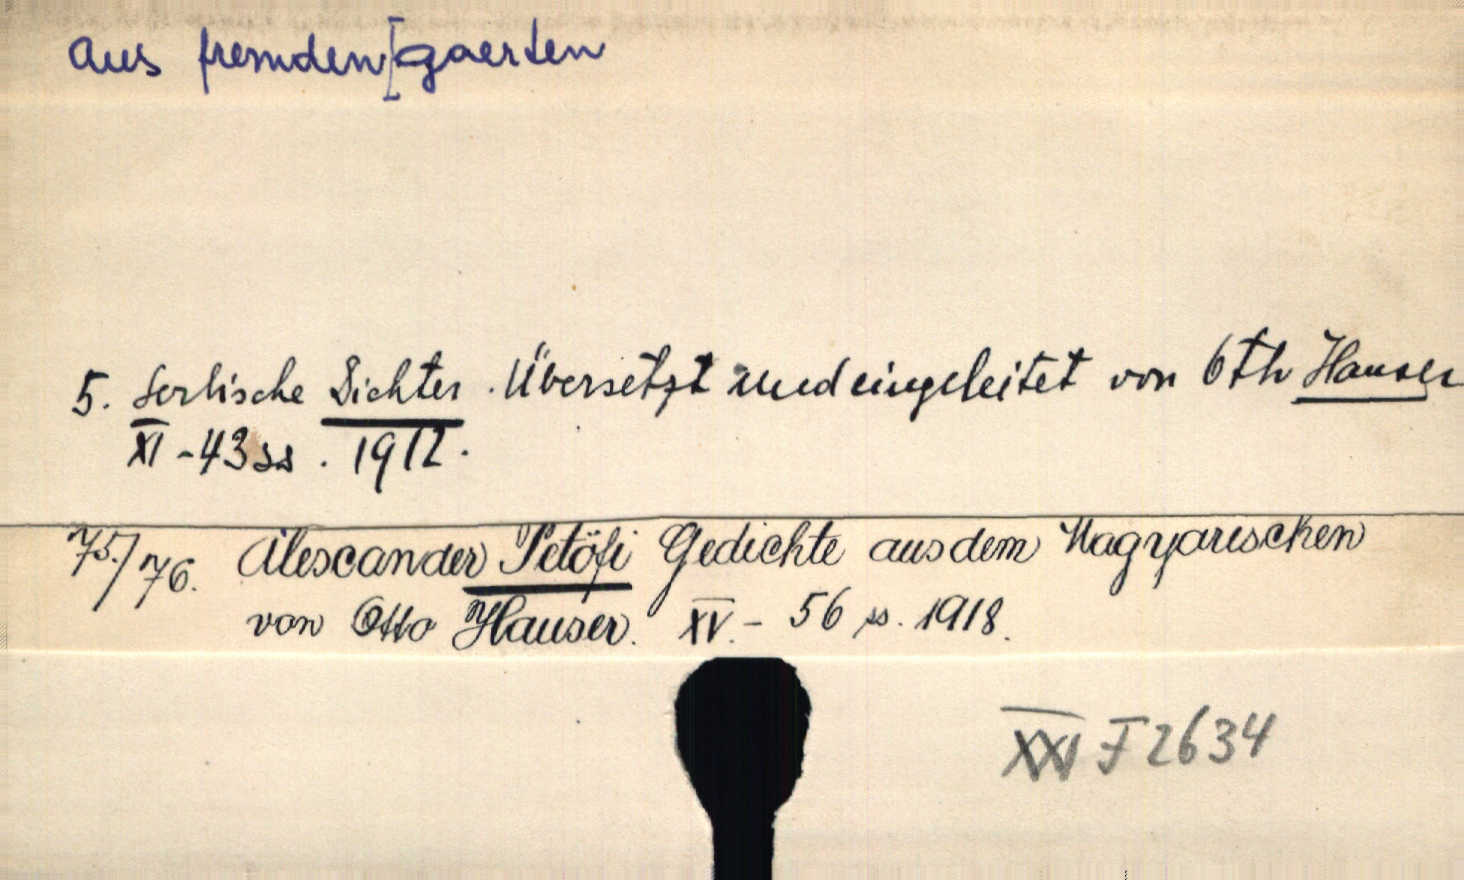 Aus fremden[gaerten
5. Serbische Dichter. Übersetzt und eingeleitet von Otto Hauser
XI - 43 ss. 1912.
75./76. Alexander Petöfi Gedichte aus dem Magyarischen
von Otto Hauser. XV. - 56 ss. 1918.
XXI F 2634